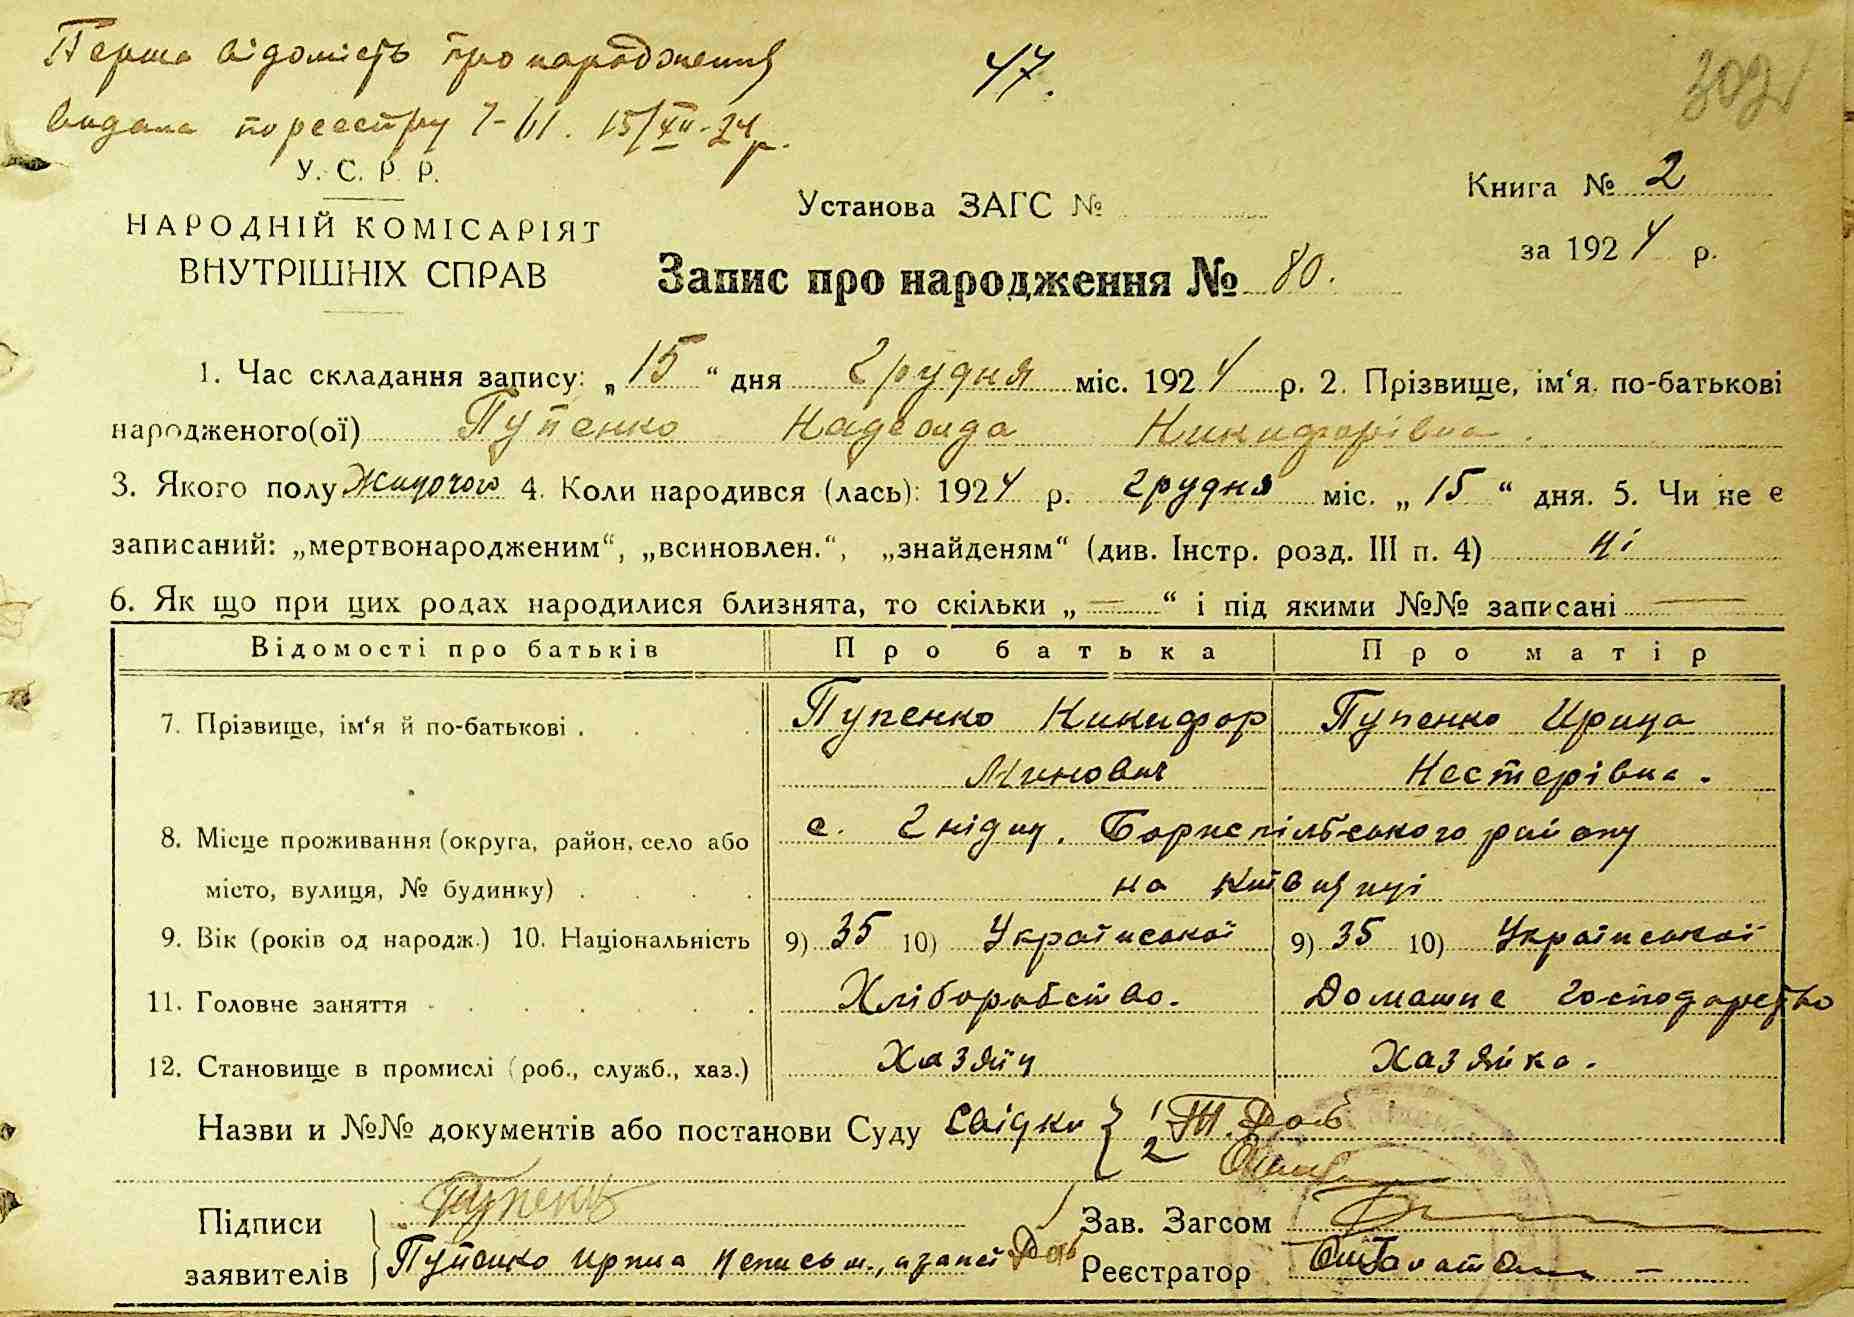 Перша відомість про народження
47.
видана по реестру 7-61. 15/XII-24 р.
У. С. Р. Р.
НАРОДНІЙ КОМІСАРІЯТ
ВНУТРІШНІХ СПРАВ
Установа ЗАГС №
Книга № 2
за 1924 р.
Запис про народження № 80.
1. Час складання запису: „15“ дня Грудня міс. 1924 р. 2. Прізвище, ім‘я, по-батькові
народженого(ої) Пупенко Надежда Никифорівна.
3. Якого полу Жиночого 4. Коли народився (лась): 1924 р. Грудня міс. „15“ дня. 5. Чи не є
записаний: „мертвонародженим“, „всиновлен.“, „знайденям“ (див. Інстр. розд. III п. 4) ні
6. Як що при цих родах народилися близнята, то скільки „—“ і під якими №№ записані —
Відомості про батьків Про батька Про матір
7. Прізвище, ім‘я й по-батькові . Пупенко Никифор Пупенко Ирина
Минович Нестерівна.
8. Місце проживання (округа, район, село або с. Гнідин, Бориспільського району
місто, вулиця, № будинку) на Київщині
9. Вік (років од народж.) 10. Національність 9) 35 10) Української 9) 35 10) Української
11. Головне заняття Хліборобство. Домашне господарство
12. Становище в промислі (роб., служб., хаз.) Хазяїн Хазяйка.
Назви и №№ документів або постанови Суду Свідки { 1
2
Підписи
Зав. Загсом
заявителів Пупенко Ирина неписьм.,
Реєстратор